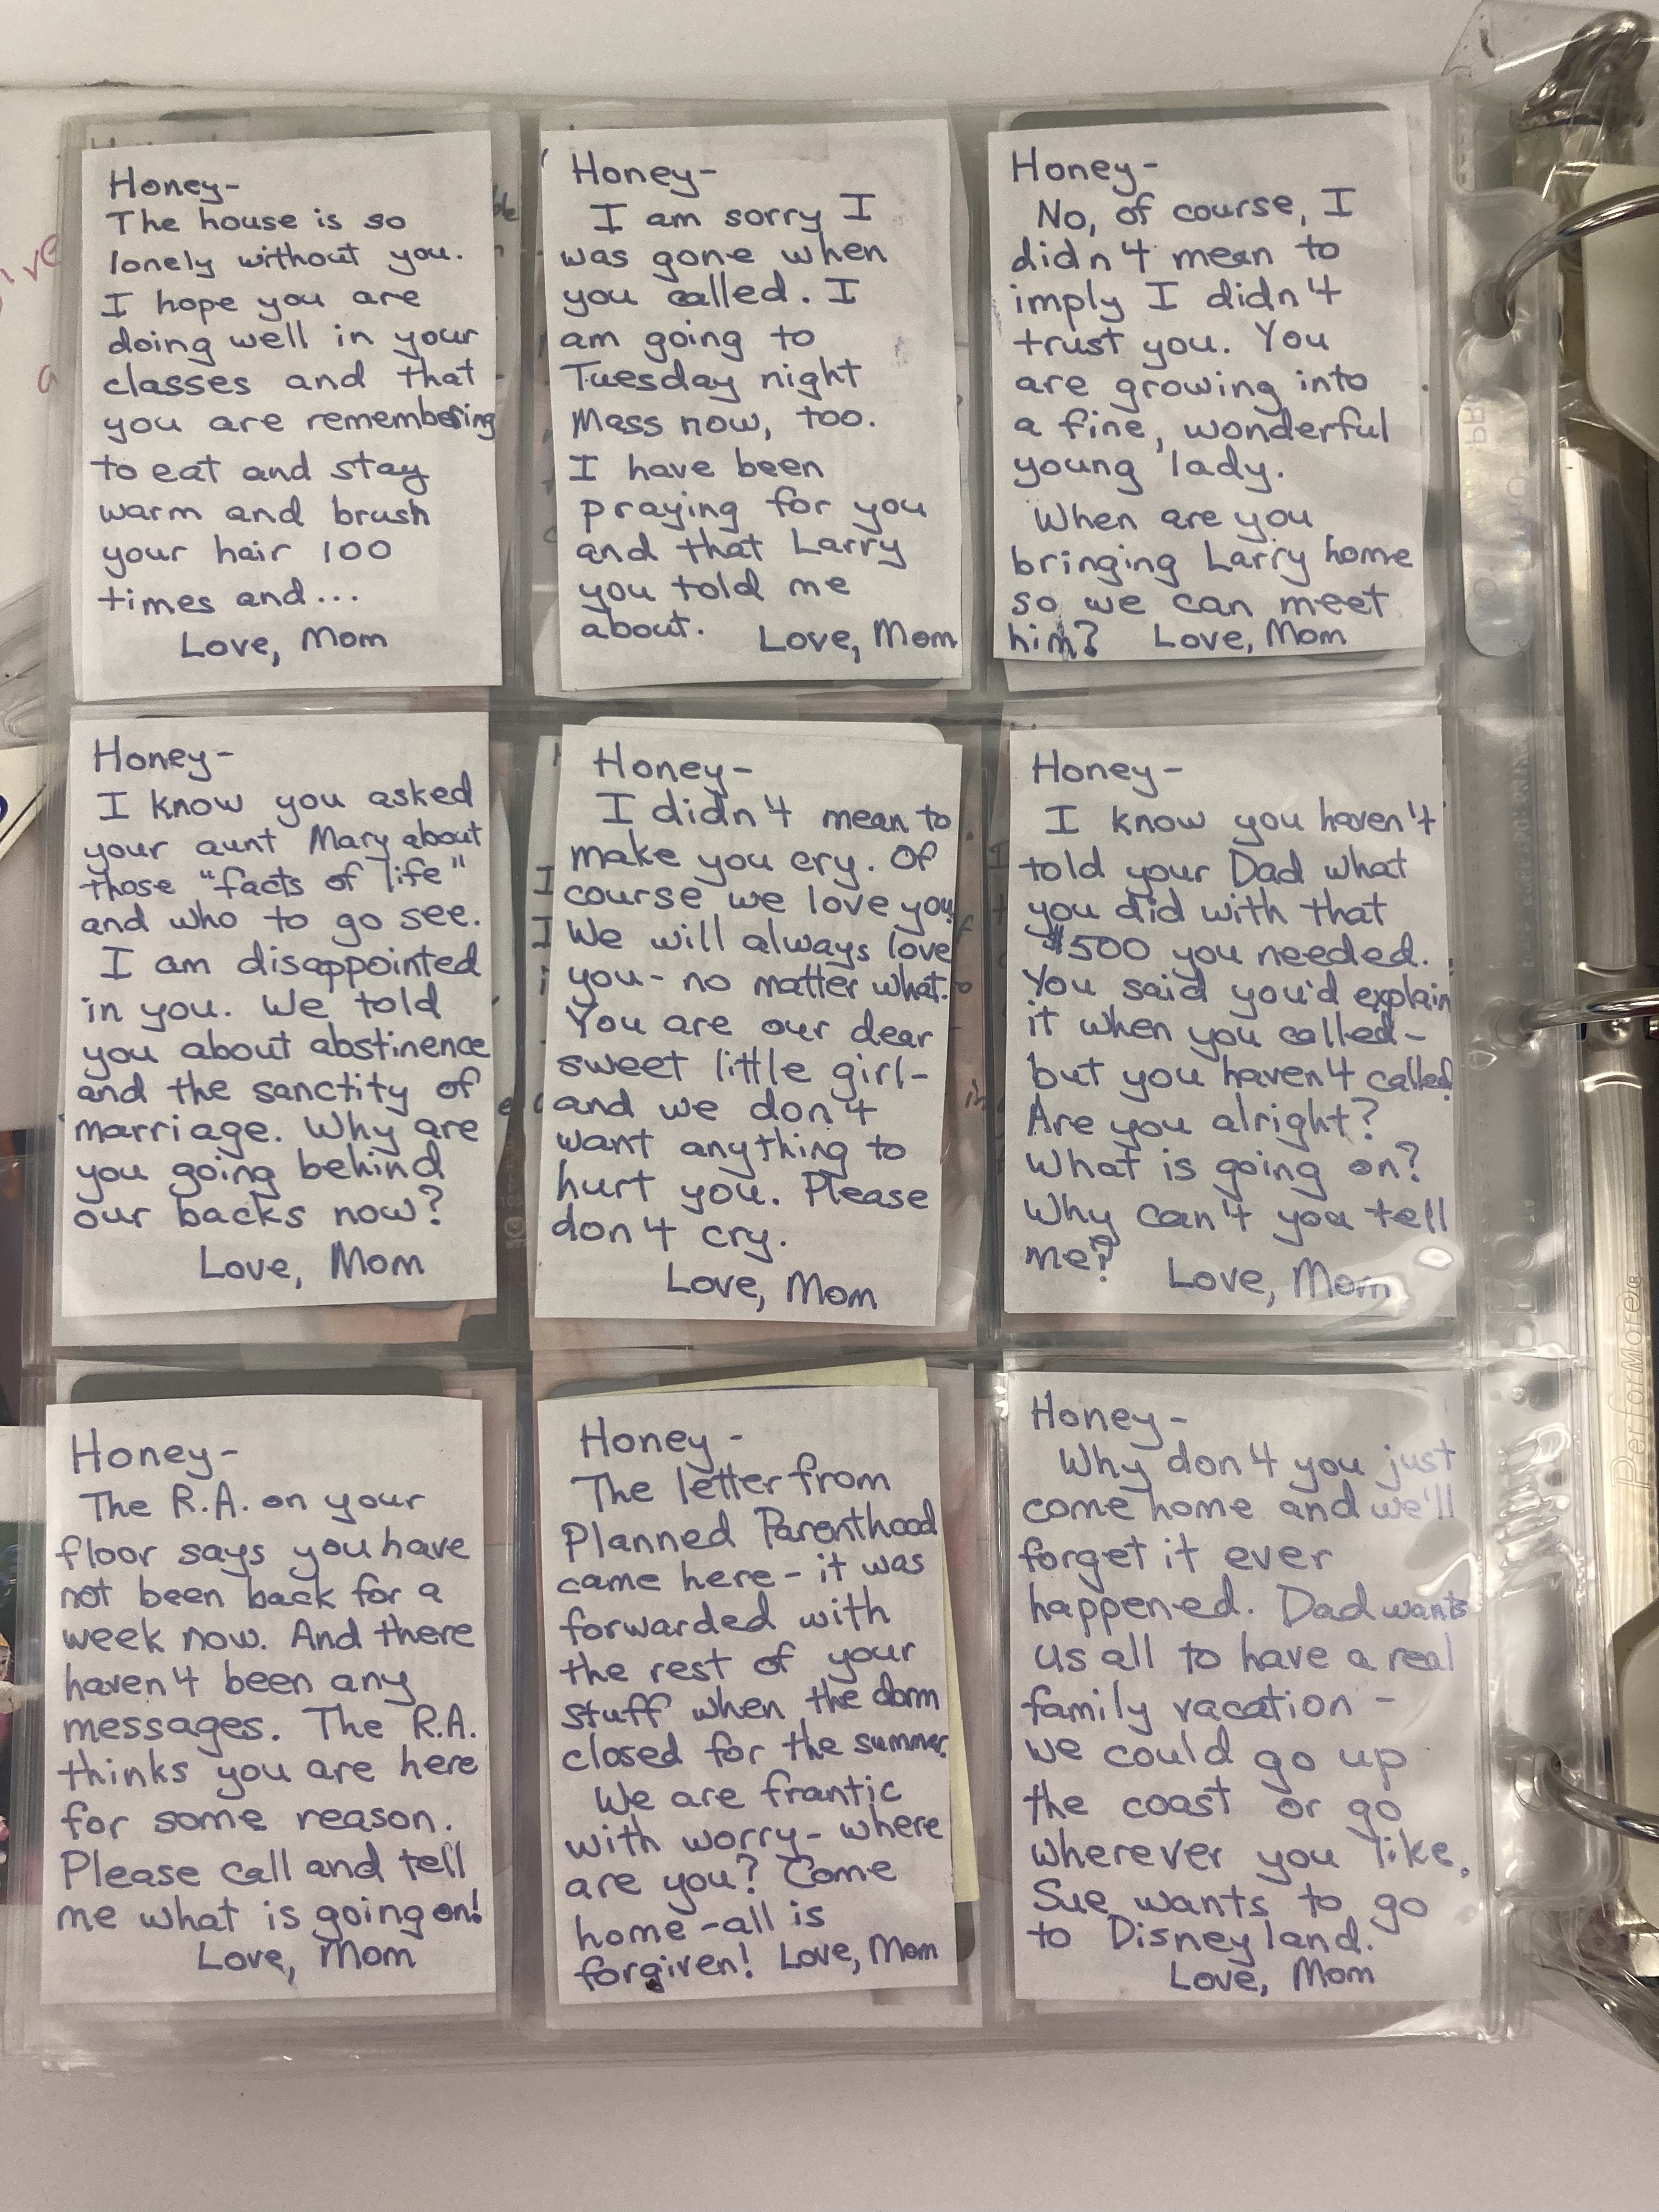 Honey-
The house is so
lonely without you.
I hope you are
doing well in your
classes and that
you are remembering
to eat and stay
warm and brush
your hair 100
times and...
Love, Mom
Honey-
I am sorry I
was gone when
you called. I
am going to
Tuesday night
Mass now, too.
I have been
praying for you
and that Larry
you told me
about. Love, Mom
Honey-
No, of course, I
didn't mean to
imply I didn't
trust you. You
are growing into
a fine, wonderful
young lady.
When are you
bringing Larry home
so we can meet
him? Love, Mom
Honey-
I know you asked
your aunt Mary about
those "facts of life"
and who to go see.
I am disappointed
in you. We told
you about abstinence
and the sanctity of
marriage. Why are
you going behind
our backs now?
Love, Mom
Honey-
I didn't mean to
make you cry. Of
course we love you
We will always love
you- no matter what.
You are our dear
sweet little girl-
and we don't
want anything to
hurt you. Please
don't cry.
Love, Mom
Honey-
I know you haven't
told your Dad what
you did with that
$500 you needed.
You said you'd explain
it when you called-
but you haven't called.
Are you alright?
What is going on?
Why can't you tell
me? Love, Mom
Honey-
The R.A. on your
floor says you have
not been back for a
week now. And there
haven't been any
messages. The R.A.
thinks you are here
for some reason.
Please call and tell
me what is going on!
Love, Mom
Honey-
The letter from
Planned Parenthood
came here - it was
forwarded with
the rest of your
stuff when the dorm
closed for the summer.
We are frantic
with worry - where
are you? Come
home - all is
forgiven! Love, Mom
Honey-
Why don't you just
come home and we'll
forget it ever
happened. Dad wants
us all to have a real
family vacation -
we could go up
the coast or go
wherever you like.
Sue wants to go
to Disneyland.
Love, Mom
PerforMore